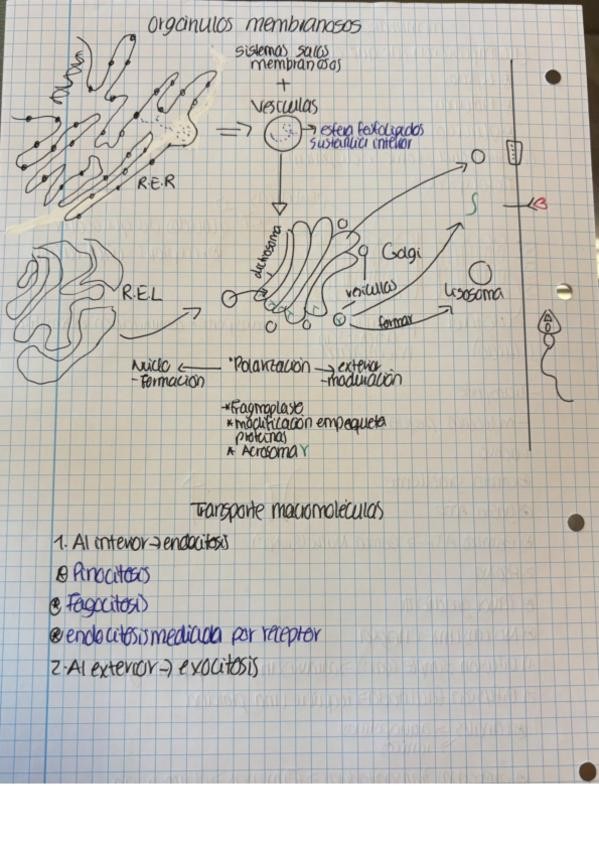 orgánulos membranosos
sistemas sacos
membranosos
+
vesículas
esfera fosfolípidos
sustancia interior
R.E.R
dictiosoma
Golgi
vesículas
R.E.L
lisosoma
formar
Núcleo ← *Polarización → exterior
-Formación -maduración
*Fragmoplasto
*modificación empaqueta
proteínas
* Acrosoma Y
Transporte macromoléculas
1. Al interior → endocitosis
Pinocitosis
Fagocitosis
endocitosis mediada por receptor
2. Al exterior → exocitosis